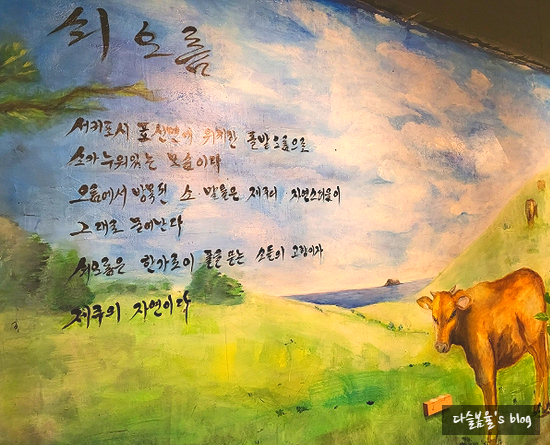 쇠오름
서귀포시 표선면에 위치한 풀밭오름으로
소가 누워있는 모습이다
오름에서 방목된 소 말들은 제주의 자연스러움이
그대로 묻어난다
쇠오름은 한가로이 풀을 뜯는 소들의 고향이자
제주의 자연이다
다슬봄율's blog